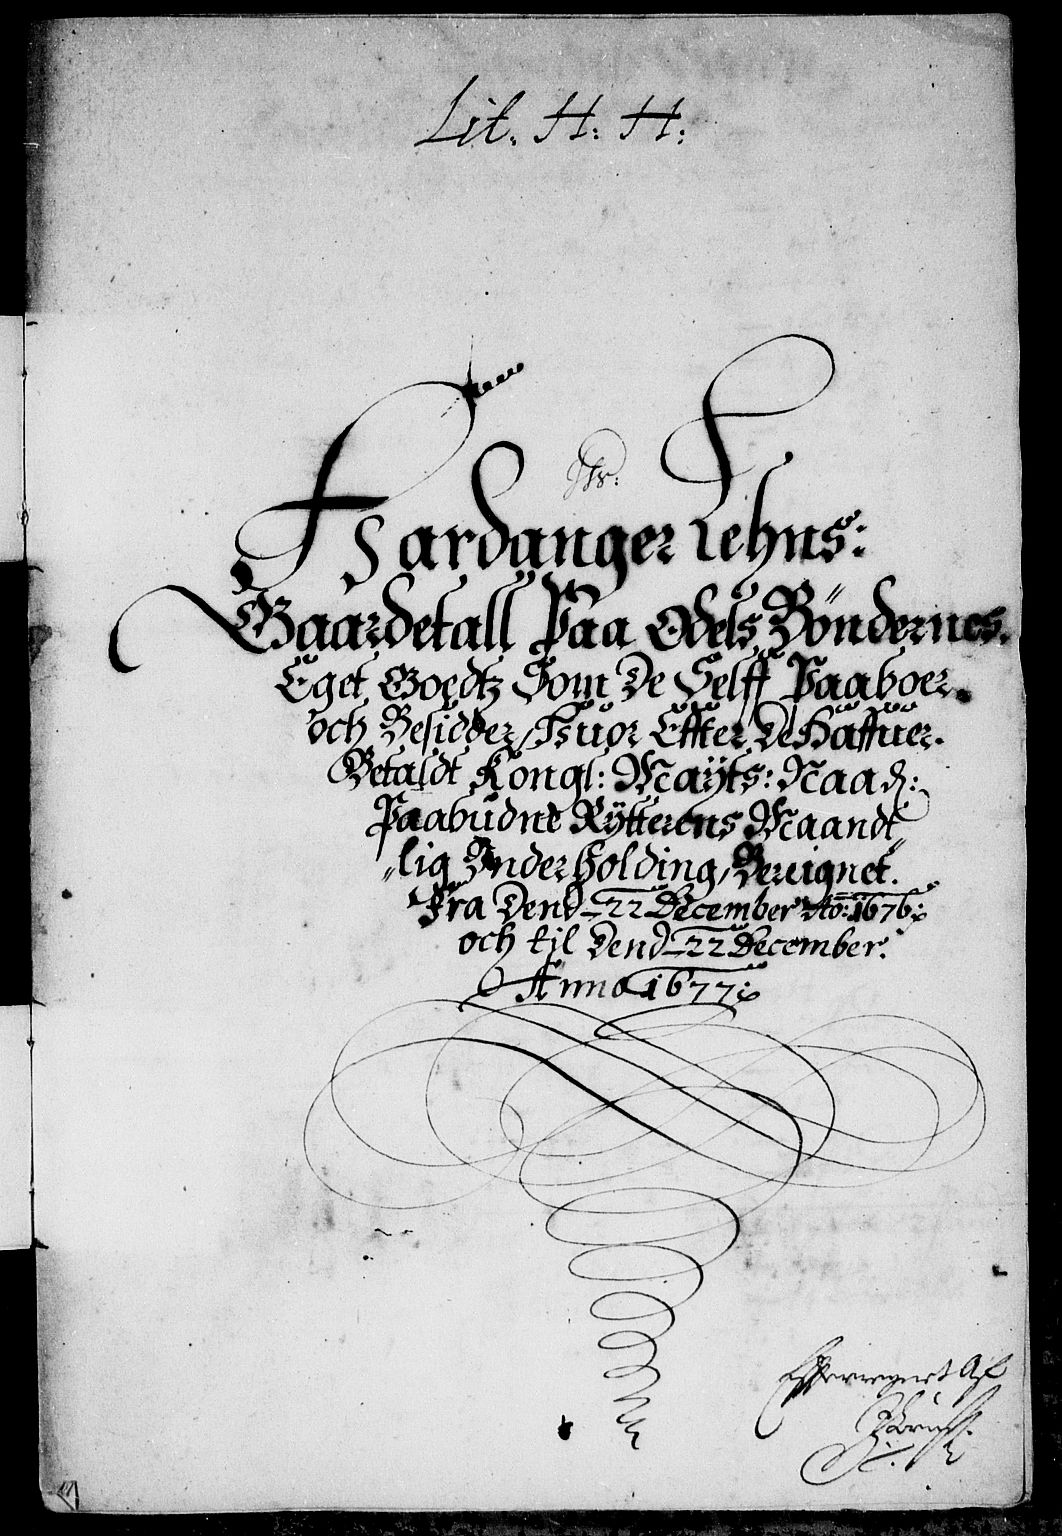 Lit. H: H:
Hardanger Lehns:
Gaardetall Paa Odels Bøndernes.
Eget Goedtz Som De Selff Paaboer.
och Besidder, Huor Effter De Haffuer.
Betaldt Kongl: Maÿts: Naad:
Paabudne Rÿtterens Maandt„
„lig Underholding, Bereignet.
Fra Dend 22 December Ao: 1676:
och til Dend 22 December.
Anno 1677:
Effterregnert Af